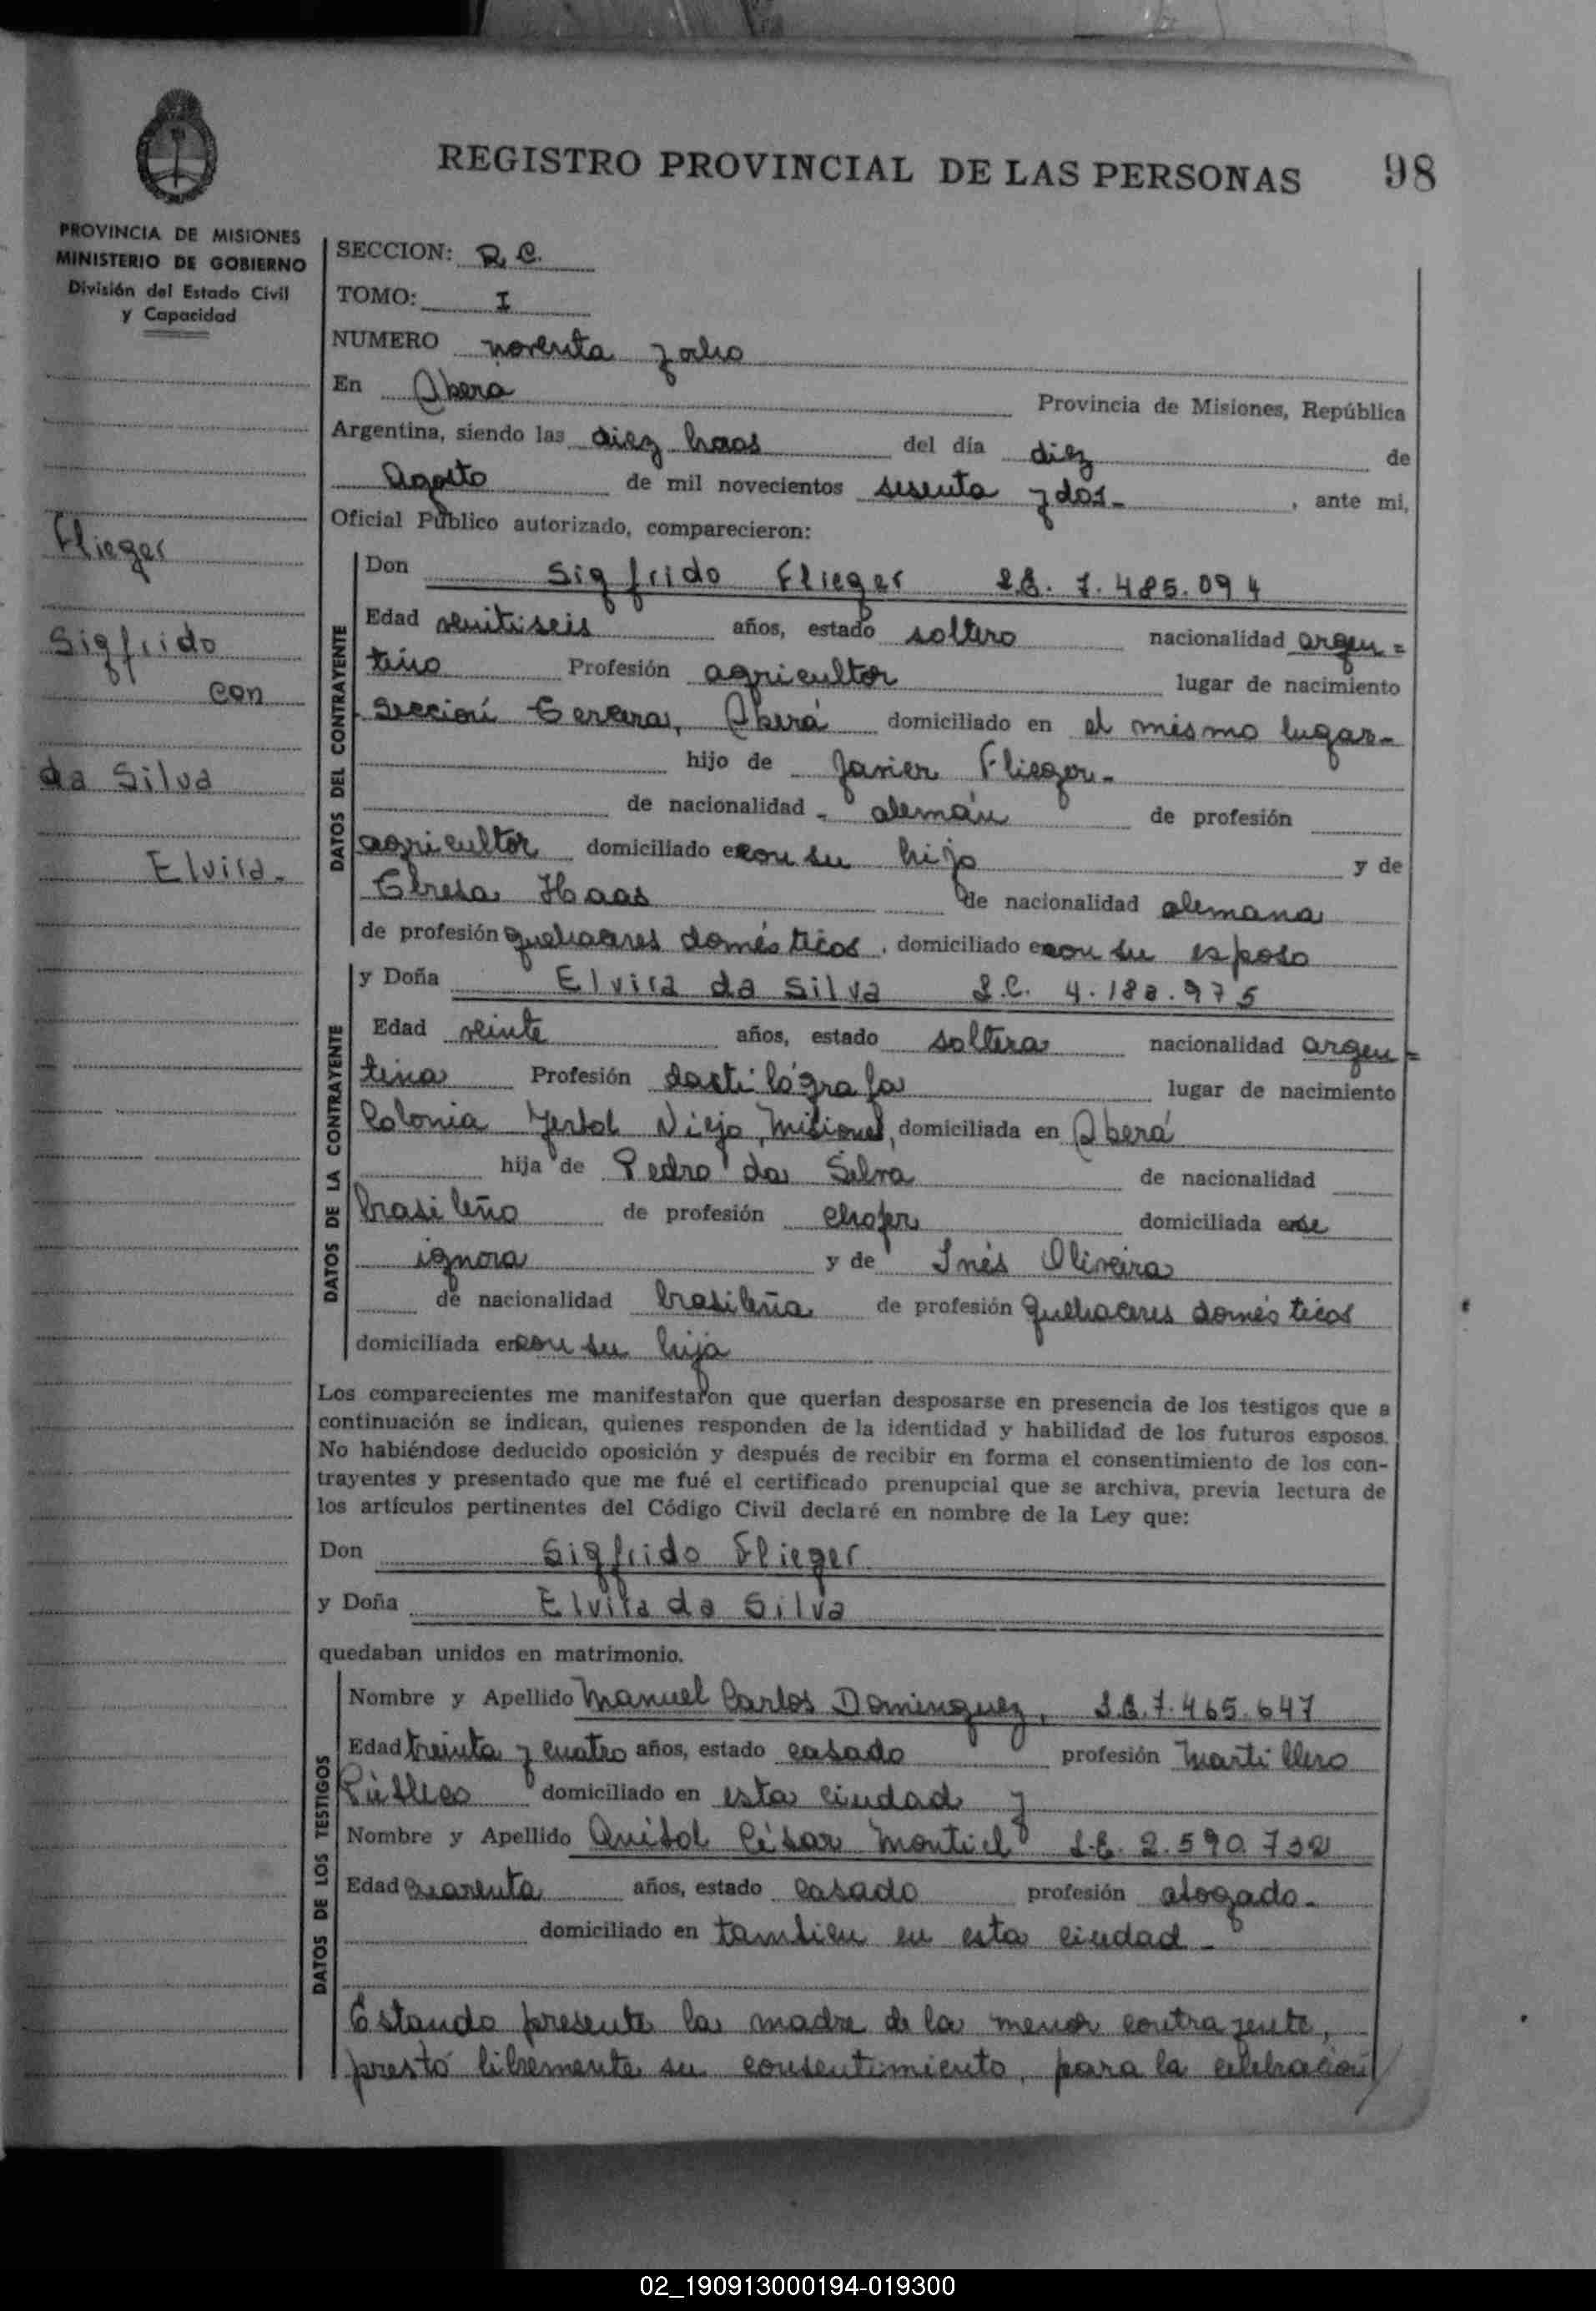 REGISTRO PROVINCIAL DE LAS PERSONAS 98
PROVINCIA DE MISIONES
MINISTERIO DE GOBIERNO
División del Estado Civil
y Capacidad
Flieger
Sigfrido
con
da Silva
Elvira.
SECCION: R. C.
TOMO: I
NUMERO noventa y ocho
En Oberá Provincia de Misiones, República
Argentina, siendo las diez horas del día diez de
Agosto de mil novecientos sesenta y dos- , ante mi,
Oficial Público autorizado, comparecieron:
DATOS DEL CONTRAYENTE
Don Sigfrido Flieger L.E. 7.485.094
Edad veintiseis años, estado soltero nacionalidad argen=
tino Profesión agricultor lugar de nacimiento
Sección Tercera, Oberá domiciliado en el mismo lugar-
hijo de Javier Flieger.-
de nacionalidad - alemán de profesión
agricultor domiciliado en con su hijo y de
Teresa Haas de nacionalidad alemana
de profesión quehaceres domésticos, domiciliado en con su esposo
DATOS DE LA CONTRAYENTE
y Doña Elvira da Silva L.C. 4.188.975
Edad veinte años, estado soltera nacionalidad argen=
tina Profesión dactilógrafa lugar de nacimiento
Colonia Yerbal Viejo, Misiones, domiciliada en Oberá
hija de Pedro da Silva de nacionalidad
brasileño de profesión chofer domiciliada en se
ignora y de Inés Oliveira
de nacionalidad brasileña de profesión quehaceres domésticos
domiciliada en con su hija
Los comparecientes me manifestaron que querían desposarse en presencia de los testigos que a
continuación se indican, quienes responden de la identidad y habilidad de los futuros esposos.
No habiéndose deducido oposición y después de recibir en forma el consentimiento de los con-
trayentes y presentado que me fué el certificado prenupcial que se archiva, previa lectura de
los artículos pertinentes del Código Civil declaré en nombre de la Ley que:
Don Sigfrido Flieger
y Doña Elvira da Silva
quedaban unidos en matrimonio.
DATOS DE LOS TESTIGOS
Nombre y Apellido Manuel Carlos Dominguez, L.E. 7.465.647
Edad treinta y cuatro años, estado casado profesión Martillero
Público domiciliado en esta ciudad y
Nombre y Apellido César Montiel L.E. 2.590.732
Edad cuarenta años, estado casado profesión abogado-
domiciliado en tambien en esta ciudad-
Estando presente la madre de la menor contrayente,
prestó libremente su consentimiento, para la celebración
02_190913000194-019300